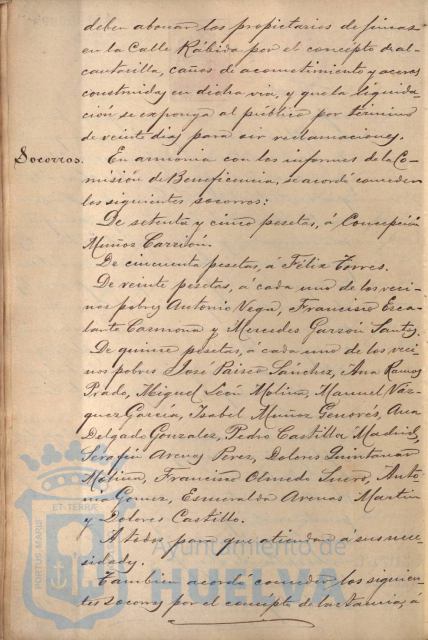 deben abonar los propietarios de fincas
en la Calle Rábida por el concepto de al-
cantarilla, caños de acometimiento y aceras
construidas en dicha via, y que la liquida-
ción se exponga al público por término
de veinte dias para oir reclamaciones.
Socorros. En armonía con los informes de la Co-
misión de Beneficencia, se acordó conceder
los siguientes socorros:
De setenta y cinco pesetas, á Concepción
Muñoz Carrión.
De cincuenta pesetas, á Félix Torres.
De veinte pesetas, á cada uno de los veci-
nos pobres Antonio Vega, Francisco Esca-
lante Carmona y Mercedes Garzón Santos.
De quince pesetas, á cada uno de los veci-
nos pobres José Sánchez, Ana Ramos
Prado, Miguel León Molina, Manuel Váz-
quez Garcia, Isabel Muñoz Genovés, Ana
Delgado Gonzalez, Pedro Castilla Madrid,
Serafín Arenas Perez, Dolores Quintanar
Molina, Francisco Olmedo Suero, Anto-
nio Gomez, Esmeralda Arenas Martin
y Dolores Castillo.
A todos para que atiendan á sus nece-
sidades.
Tambien acordó conceder los siguien-
tes socorros por el concepto de lactancia, á
PORTUS MARIS ET TERRÆ
Ayuntamiento de
HUELVA